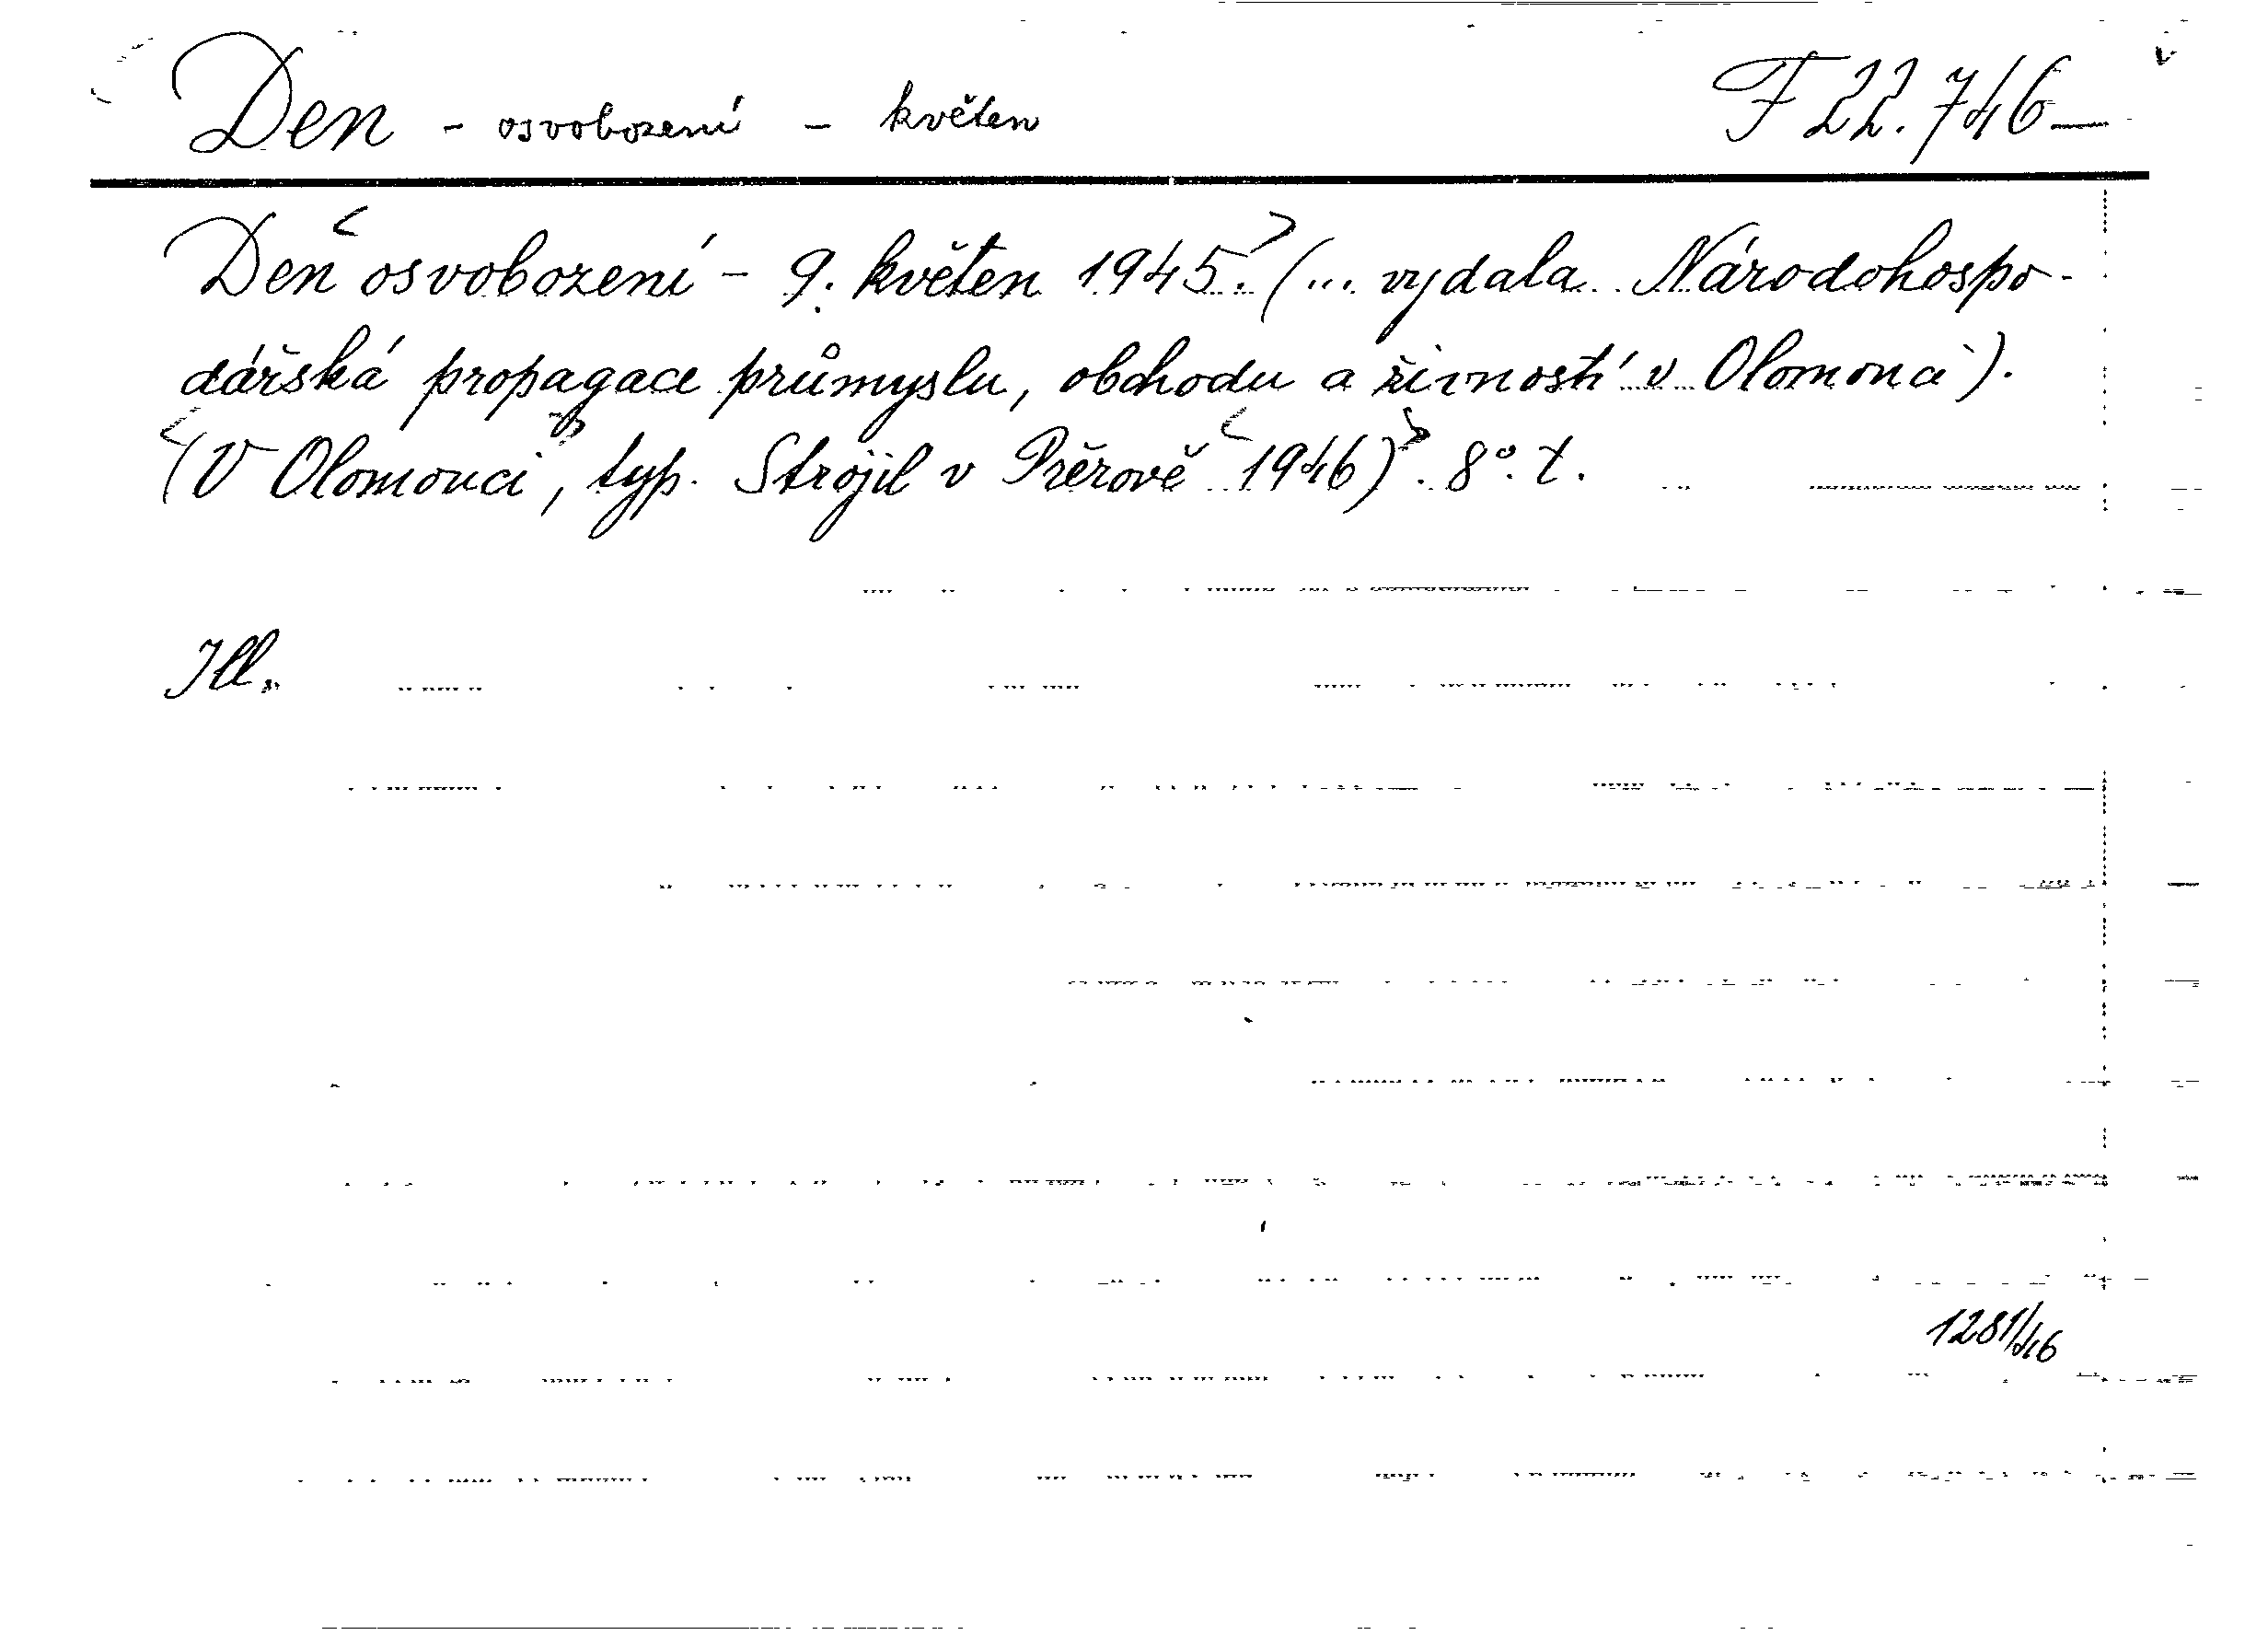 Den - osvobození - květen F 22.746-
Den < osvobození - 9. květen 1945. > (... vydala Národohospo-
dářská propagace průmyslu, obchodu a živností v Olomouci).
<(V Olomouci>, typ. Strojil v Přerově <1946)>. 8°. t.
Ill.
1281/46